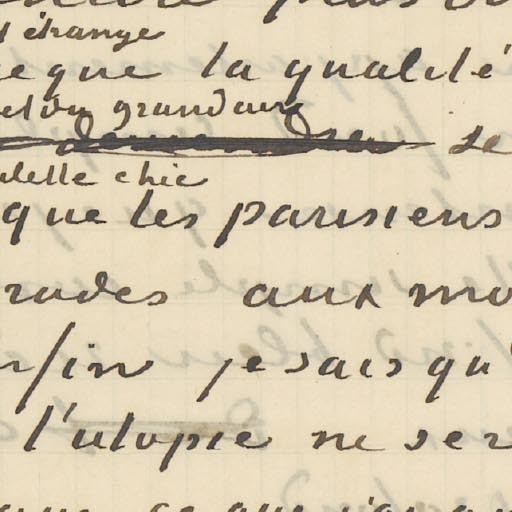 étrange
que la qualité
grandeur
se
chic
que les parisiens
rades aux mo
enfin je sais qu
l'utopie ne ser